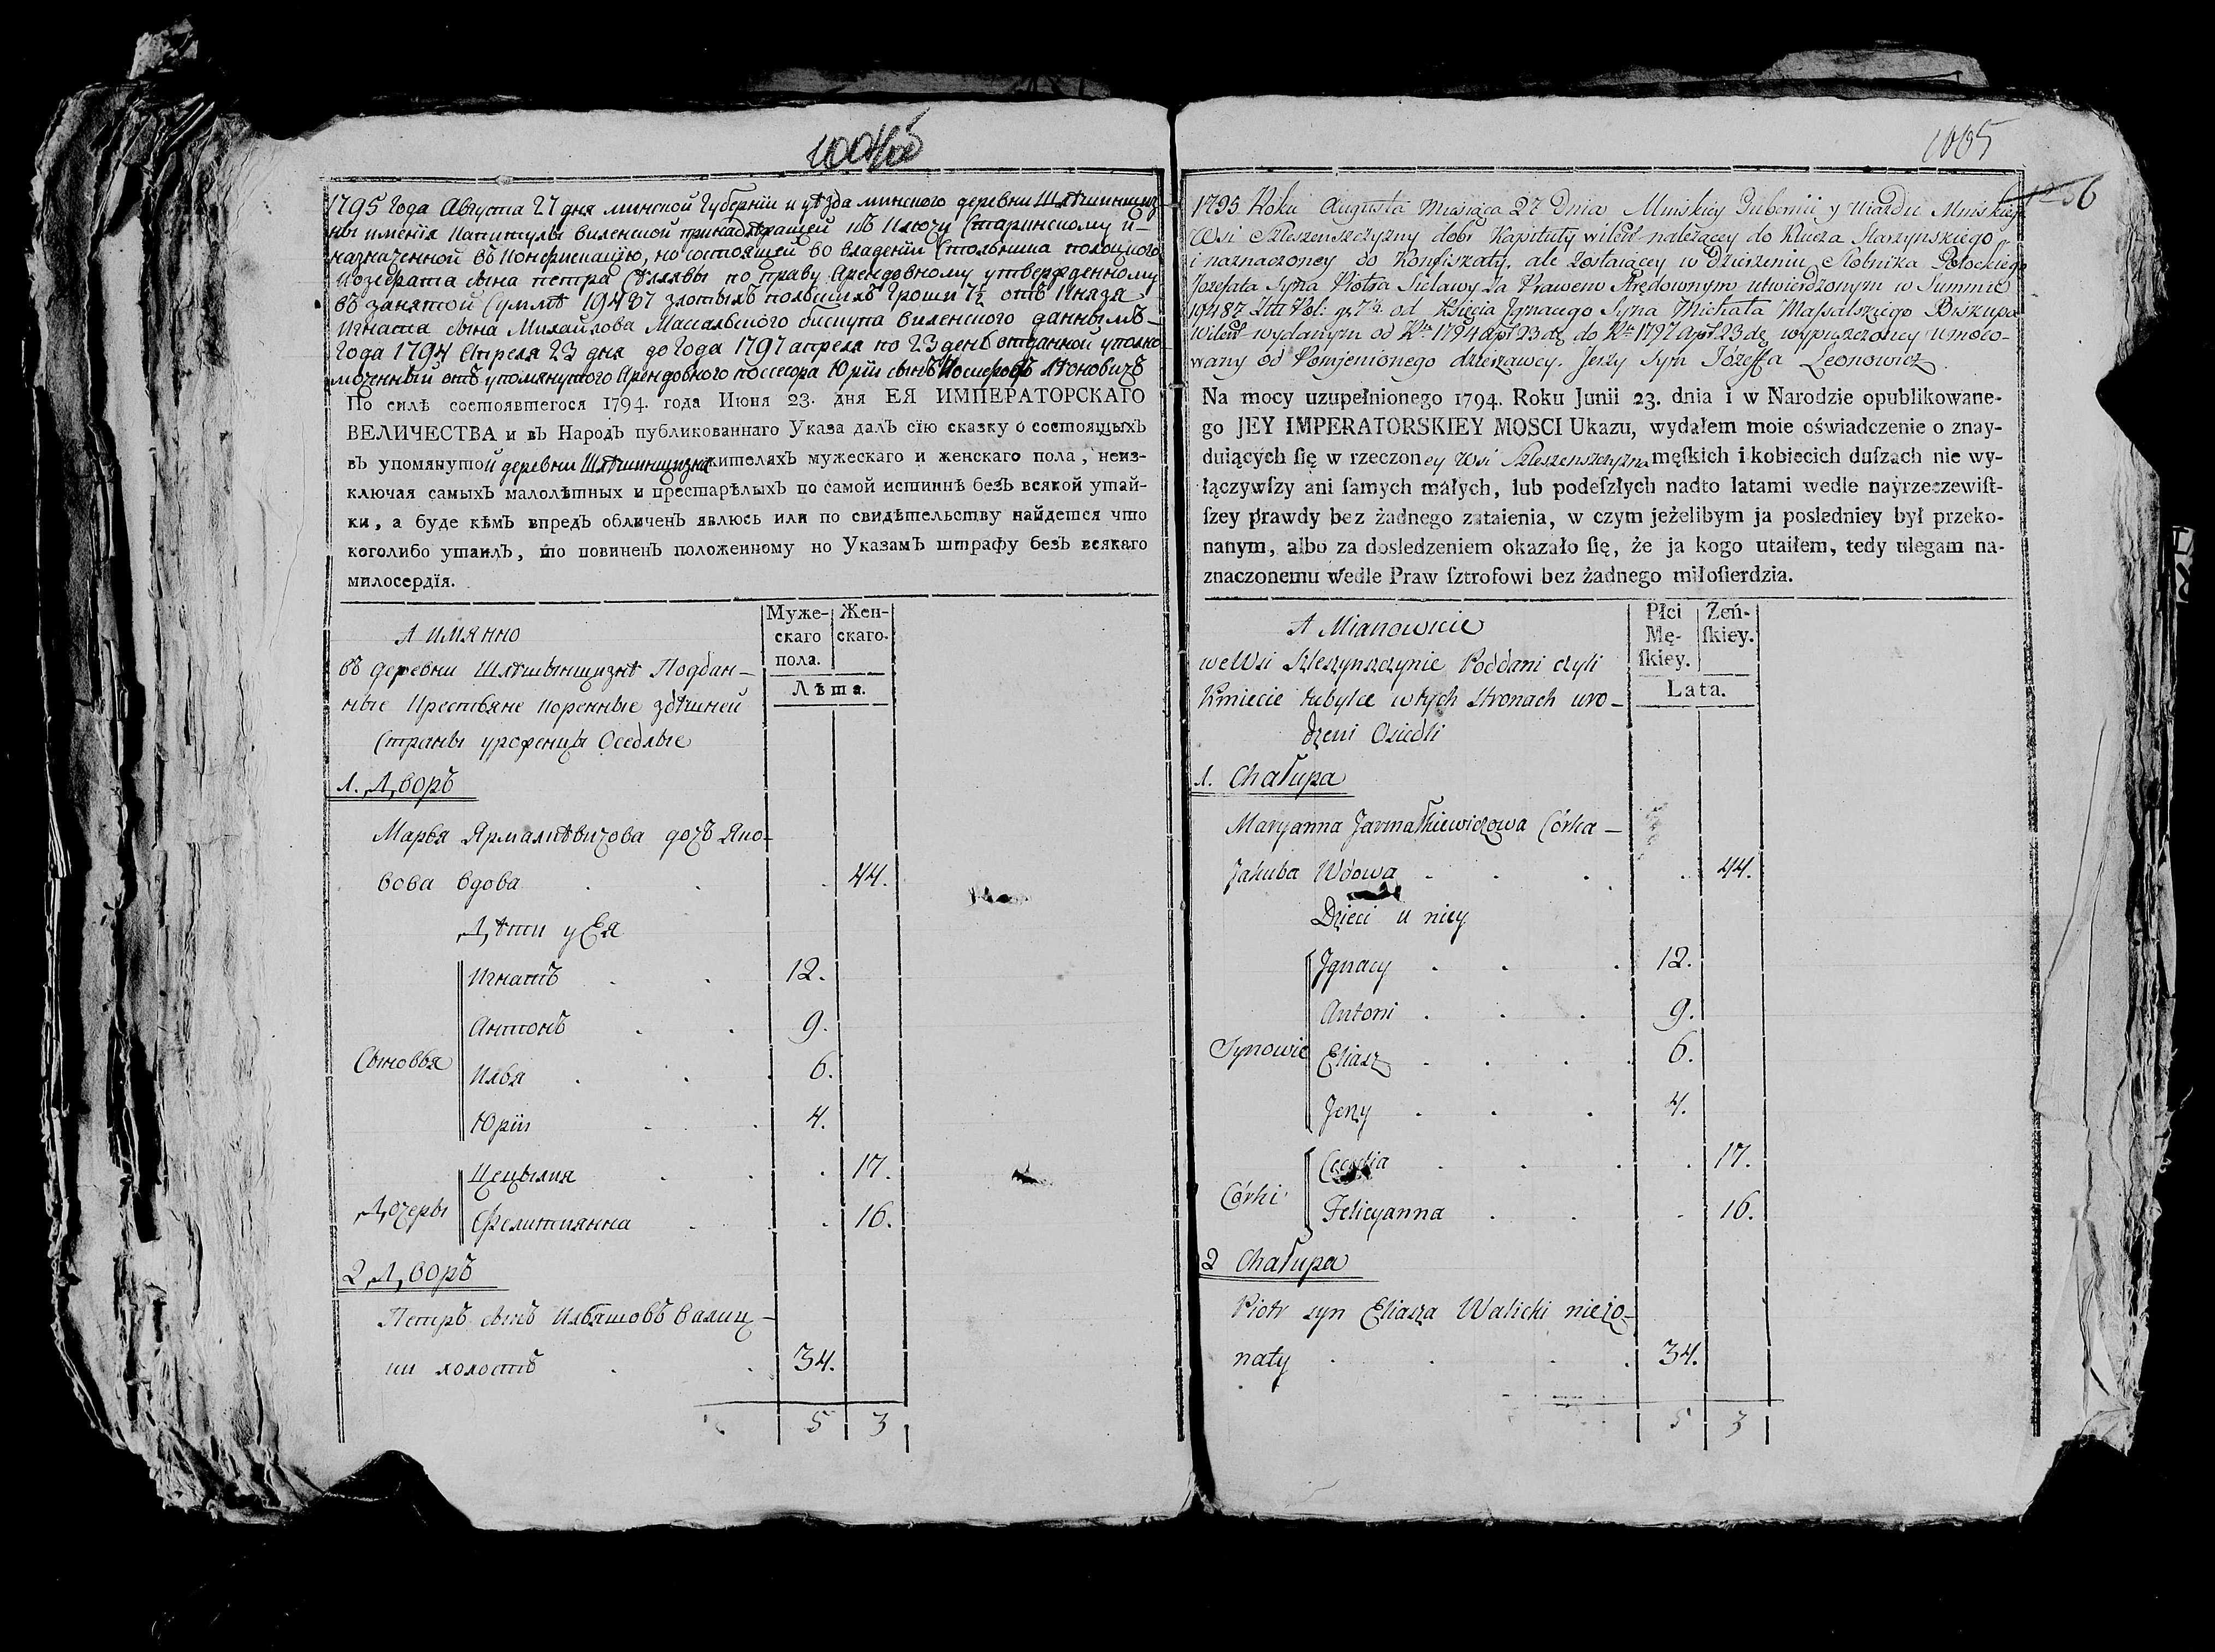 1005
1795 Года Августа 27 дня минской Губернїи и уѣзда минского деревни Шлѣшинщиз
ны имѣнїя Капитулы виленской принадлѣжащей къ Ключу Старинскому и
назначенной въ Конфискацїю, но состоящей во владенїи Столника полоцкого
Иозефата сына петра Сѣлявы по праву Арендовному утвержденному
въ занятой Суммѣ 19487 злотыхъ польскихъ Гроши 7½ отъ Князя
Игнатїа сына Михайлова Массальского бискупа виленского даннымъ
Года 1794 Апреля 23 дня до Года 1797 апреля по 23 день отданной уполно
моченный отъ упомянутого Арендовного поссесора Юрїй сынъ Иосифовъ Лѣоновичъ
По силѣ состоявшегося 1794. года Июня 23. дня ЕЯ ИМПЕРАТОРСКАГО
ВЕЛИЧЕСТВА и въ Народъ публикованнаго Указа далъ сїю сказку о состоящыхъ
въ упомянутой деревни Шлѣшинщизна жителяхъ мужескаго и женскаго пола, неиз-
ключая самыхъ малолѣтныхъ и престарѣлыхъ по самой истиннѣ безъ всякой утай-
ки, а буде кѣмъ впредь обличенъ явлюсь или по свидѣтельству найдется что
коголибо утаилъ, то повиненъ положенному по Указамъ штрафу безъ всякаго
милосердїя.
Муже-
скаго
пола.
Жен-
скаго.
Лѣта.
А имянно
въ деревни Шлѣшынщизнѣ Поддан-
ные Крестьяне коренные здѣшней
Страны уроженцы Оседлые
1. Дворъ
Марья Ярмалкѣвичова дочь Яко-
вова вдова . . . 44.
Дѣти у Ея
Игнатъ . . 12.
Антонъ . . 9.
Сыновья
Илья . . . 6.
Юрїй . . 4.
Цецылия . . . 17.
Дочеры
Фелитиянна . . . 16.
2. Дворъ
Петръ сынъ Ильяшовъ Валиц-
ки холостъ . . 34.
5 3
1005
56
1795 Roku Augusta Miesiąca 27 Dnia Minskiey Gubernii y Uiazdu Minskiego
Wsi Szleszenszczyzny dobr Kapituły wileń. należącey do Klucza Starzynskiego
i naznaczoney do Konfiskaty, ale zostaiącey w dzierzeniu Stolnika Połockiego
Jozefata Syna Piotra Sielawy za Prawem Aręndownym utwierdzonym w Summie
19487 Złł Pol: gr 7½ od Xięcia Jgnacego Syna Michała Massalskiego Biskupa
wileń. wydanym od Rku 1794 Apr 23 dę do Rku 1797 Apr 23 dę wypuszczoney umoco-
wany od Pomjenionego dzierżawcy. Jerzy Syn Józeffa Leonowicz.
Na mocy uzupełnionego 1794. Roku Junii 23. dnia i w Narodzie opublikowane-
go JEY IMPERATORSKIEY MOSCI Ukazu, wydałem moie oświadczenie o znay-
duiących ſię w rzeczoney Wsi Szleszenszczyzna męſkich i kobiecich duſzach nie wy-
łączywſzy ani ſamych małych, lub podeſzłych nadto latami wedle nayrzeczewiſt-
ſzey prawdy bez żadnego zataienia, w czym jeżelibym ja posledniey był przeko-
nanym, albo za dosledzeniem okazało ſię, że ja kogo utaiłem, tedy ulegam na-
znaczonemu wedle Praw ſztrofowi bez żadnego miłoſierdzia.
Płci
Mę-
ſkiey.
Żeń-
ſkiey.
Lata.
A Mianowicie
we Wsi Szleszynszczynie Poddani czyli
Kmiecie tubylce w tych stronach uro-
dzeni Osiedli
1. Chałupa
Maryanna Jarmałkiewiczowa Córka
Jakuba Wdowa . . . . 44.
Dzieci u niey
Jgnacy . . . 12.
Antoni . . . 9.
Synowie
Eliasz . . . . 6.
Jerzy . . . 4.
Cecylia . . . . 17.
Córki
Felicyanna . . . 16.
2 Chałupa
Piotr syn Eliasza Walicki nieżo-
naty . . . . 34.
5 3